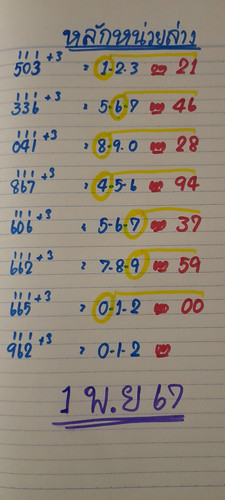 หลักหน่วยล่าง
503 +3 = 1-2-3 21
336 +3 = 5-6-7 46
041 +3 = 8-9-0 28
867 +3 = 4-5-6 94
606 +3 = 5-6-7 37
662 +3 = 7-8-9 59
665 +3 = 0-1-2 00
962 +3 = 0-1-2
1 พ.ย 67